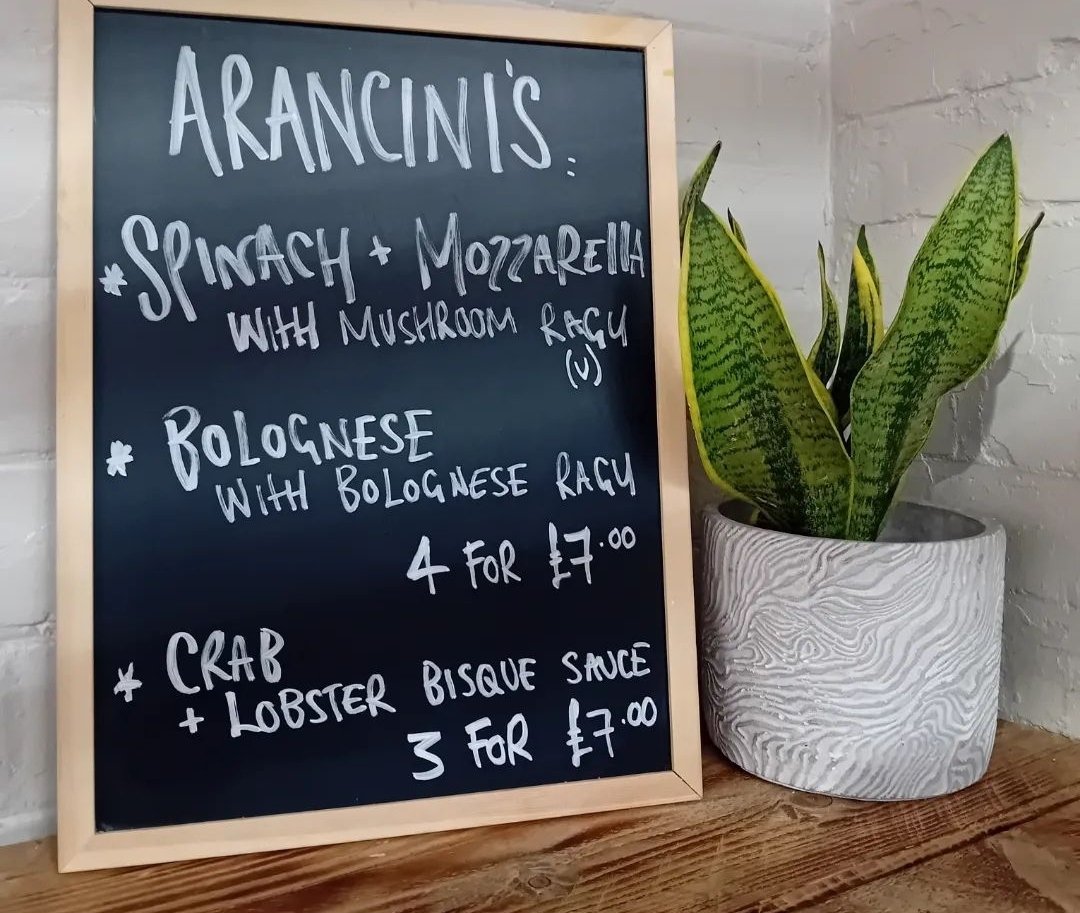 ARANCINI'S:
* SPINACH + MOZZARELLA
WITH MUSHROOM RAGU
(V)
* BOLOGNESE
WITH BOLOGNESE RAGU
4 FOR £7.00
* CRAB
+ LOBSTER BISQUE SAUCE
3 FOR £7.00